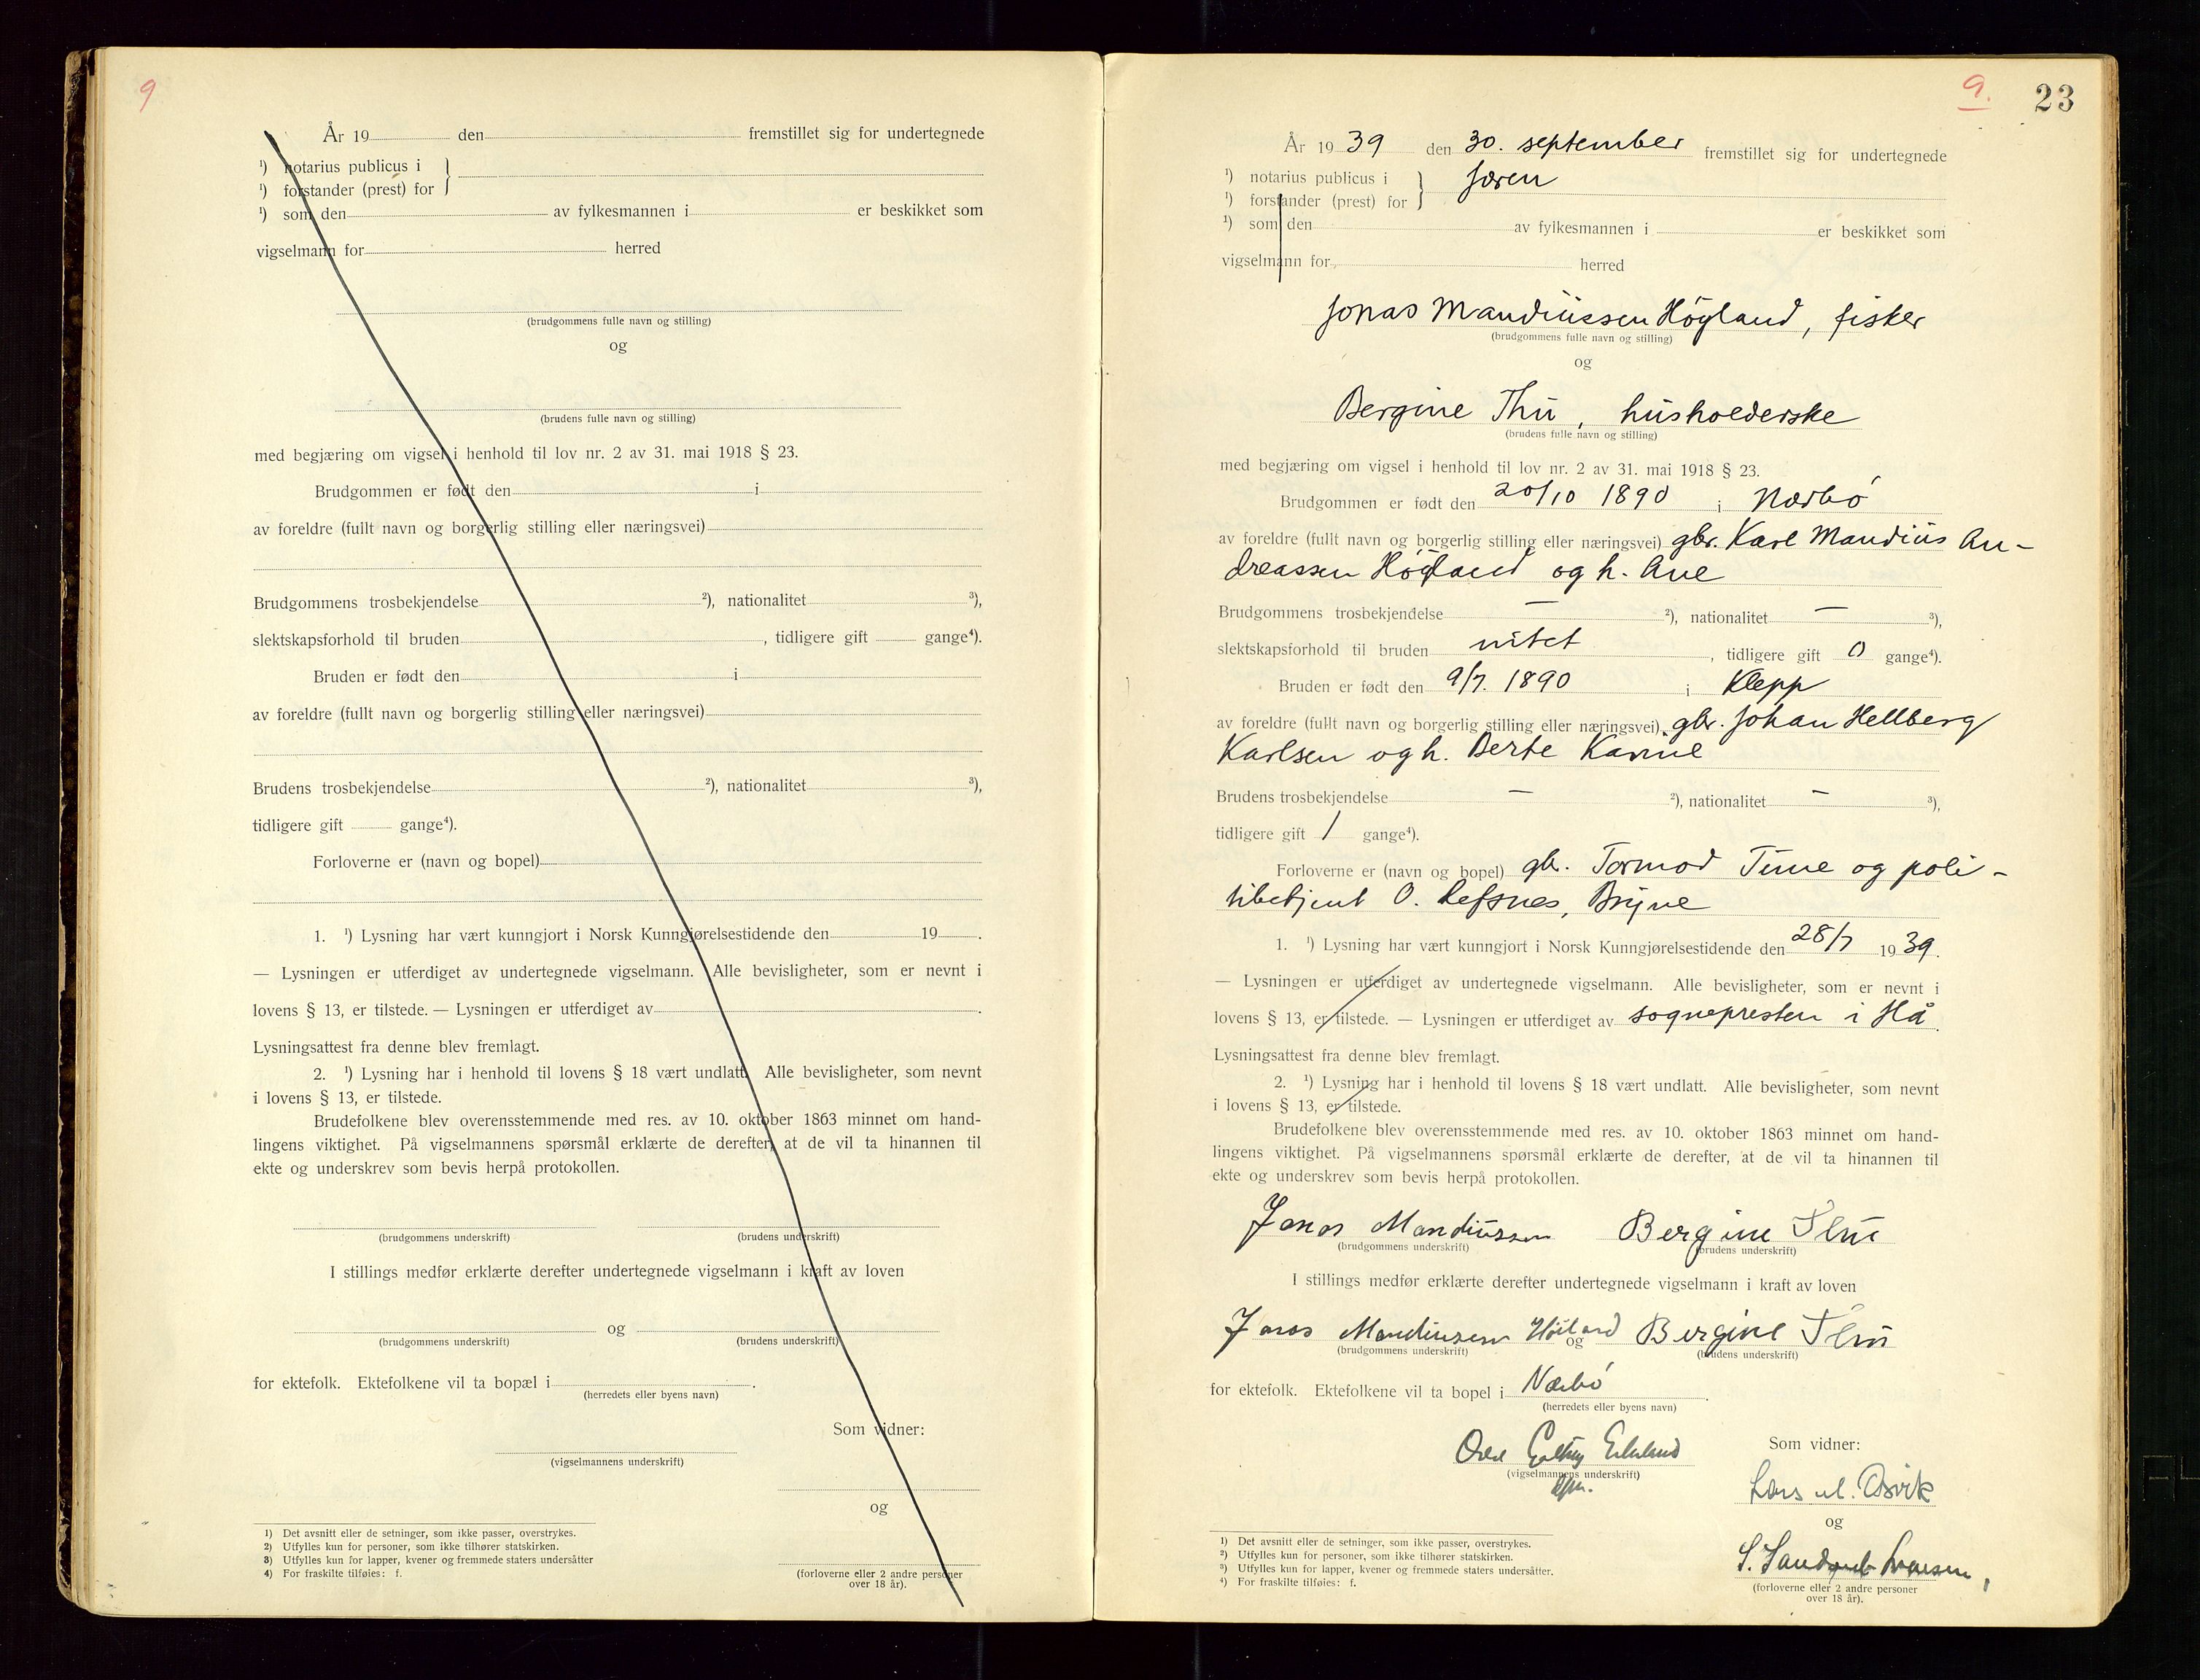 9
År 19 den fremstillet sig for undertegnede
¹) notarius publicus i }
¹) forstander (prest) for
¹) som den av fylkesmannen i er beskikket som
vigselmann for herred
(brudgommens fulle navn og stilling)
og
(brudens fulle navn og stilling)
med begjæring om vigsel i henhold til lov nr. 2 av 31. mai 1918 § 23.
Brudgommen er født den i
av foreldre (fullt navn og borgerlig stilling eller næringsvei)
Brudgommens trosbekjendelse ²), nationalitet ³),
slektskapsforhold til bruden , tidligere gift gange⁴).
Bruden er født den i
av foreldre (fullt navn og borgerlig stilling eller næringsvei)
Brudens trosbekjendelse ²), nationalitet ³),
tidligere gift gange⁴).
Forloverne er (navn og bopel)
1. ¹) Lysning har vært kunngjort i Norsk Kunngjørelsestidende den 19 .
— Lysningen er utferdiget av undertegnede vigselmann. Alle bevisligheter, som er nevnt i
lovens § 13, er tilstede. — Lysningen er utferdiget av .
Lysningsattest fra denne blev fremlagt.
2. ¹) Lysning har i henhold til lovens § 18 vært undlatt. Alle bevisligheter, som nevnt
i lovens § 13, er tilstede.
Brudefolkene blev overensstemmende med res. av 10. oktober 1863 minnet om hand-
lingens viktighet. På vigselmannens spørsmål erklærte de derefter, at de vil ta hinannen til
ekte og underskrev som bevis herpå protokollen.
(brudgommens underskrift) (brudens underskrift)
I stillings medfør erklærte derefter undertegnede vigselmann i kraft av loven
og
(brudgommens underskrift) (brudens underskrift)
for ektefolk. Ektefolkene vil ta bopæl i .
(herredets eller byens navn)
Som vidner:
(vigselmannens underskrift)
og
(forloverne eller 2 andre personer
over 18 år).
1) Det avsnitt eller de setninger, som ikke passer, overstrykes.
2) Utfylles kun for personer, som ikke tilhører statskirken.
3) Utfylles kun for lapper, kvener og fremmede staters undersåtter
4) For fraskilte tilføies: f.
9. 23
År 1939 den 30. september fremstillet sig for undertegnede
¹) notarius publicus i } Jæren
¹) forstander (prest) for
¹) som den av fylkesmannen i er beskikket som
vigselmann for herred
Jonas Mandiussen Høyland, fisker
(brudgommens fulle navn og stilling)
og
Bergine Thu, husholderske
(brudens fulle navn og stilling)
med begjæring om vigsel i henhold til lov nr. 2 av 31. mai 1918 § 23.
Brudgommen er født den 20/10 1890 i Nærbø
av foreldre (fullt navn og borgerlig stilling eller næringsvei) gbr. Karl Mandius An-
dreassen Høyland og h. Ane
Brudgommens trosbekjendelse — ²), nationalitet — ³),
slektskapsforhold til bruden intet , tidligere gift 0 gange⁴).
Bruden er født den 9/7. 1890 i Klepp
av foreldre (fullt navn og borgerlig stilling eller næringsvei) gbr. Johan Hellberg
Karlsen og h. Berte Karine
Brudens trosbekjendelse — ²), nationalitet — ³),
tidligere gift 1 gange⁴).
Forloverne er (navn og bopel) gbr. Tormod Time og poli-
tibetjent O. Refsnes, Bryne
1. ¹) Lysning har vært kunngjort i Norsk Kunngjørelsestidende den 28/7 1939.
— Lysningen er utferdiget av undertegnede vigselmann. Alle bevisligheter, som er nevnt i
lovens § 13, er tilstede. — Lysningen er utferdiget av sognepresten i Hå.
Lysningsattest fra denne blev fremlagt.
2. ¹) Lysning har i henhold til lovens § 18 vært undlatt. Alle bevisligheter, som nevnt
i lovens § 13, er tilstede.
Brudefolkene blev overensstemmende med res. av 10. oktober 1863 minnet om hand-
lingens viktighet. På vigselmannens spørsmål erklærte de derefter, at de vil ta hinannen til
ekte og underskrev som bevis herpå protokollen.
Jonas Mandiussen Bergine Thu
(brudgommens underskrift) (brudens underskrift)
I stillings medfør erklærte derefter undertegnede vigselmann i kraft av loven
Jonas Mandiussen Høiland og Bergine Thu
(brudgommens underskrift) (brudens underskrift)
for ektefolk. Ektefolkene vil ta bopel i Nærbø .
(herredets eller byens navn)
Odd
(vigselmannens underskrift)
Som vidner:
Lars M. Osvik
og
S. Larsen,
(forloverne eller 2 andre personer
over 18 år).
¹) Det avsnitt eller de setninger, som ikke passer, overstrykes.
²) Utfylles kun for personer, som ikke tilhører statskirken.
³) Utfylles kun for lapper, kvener og fremmede staters undersåtter.
⁴) For fraskilte tilføies: f.